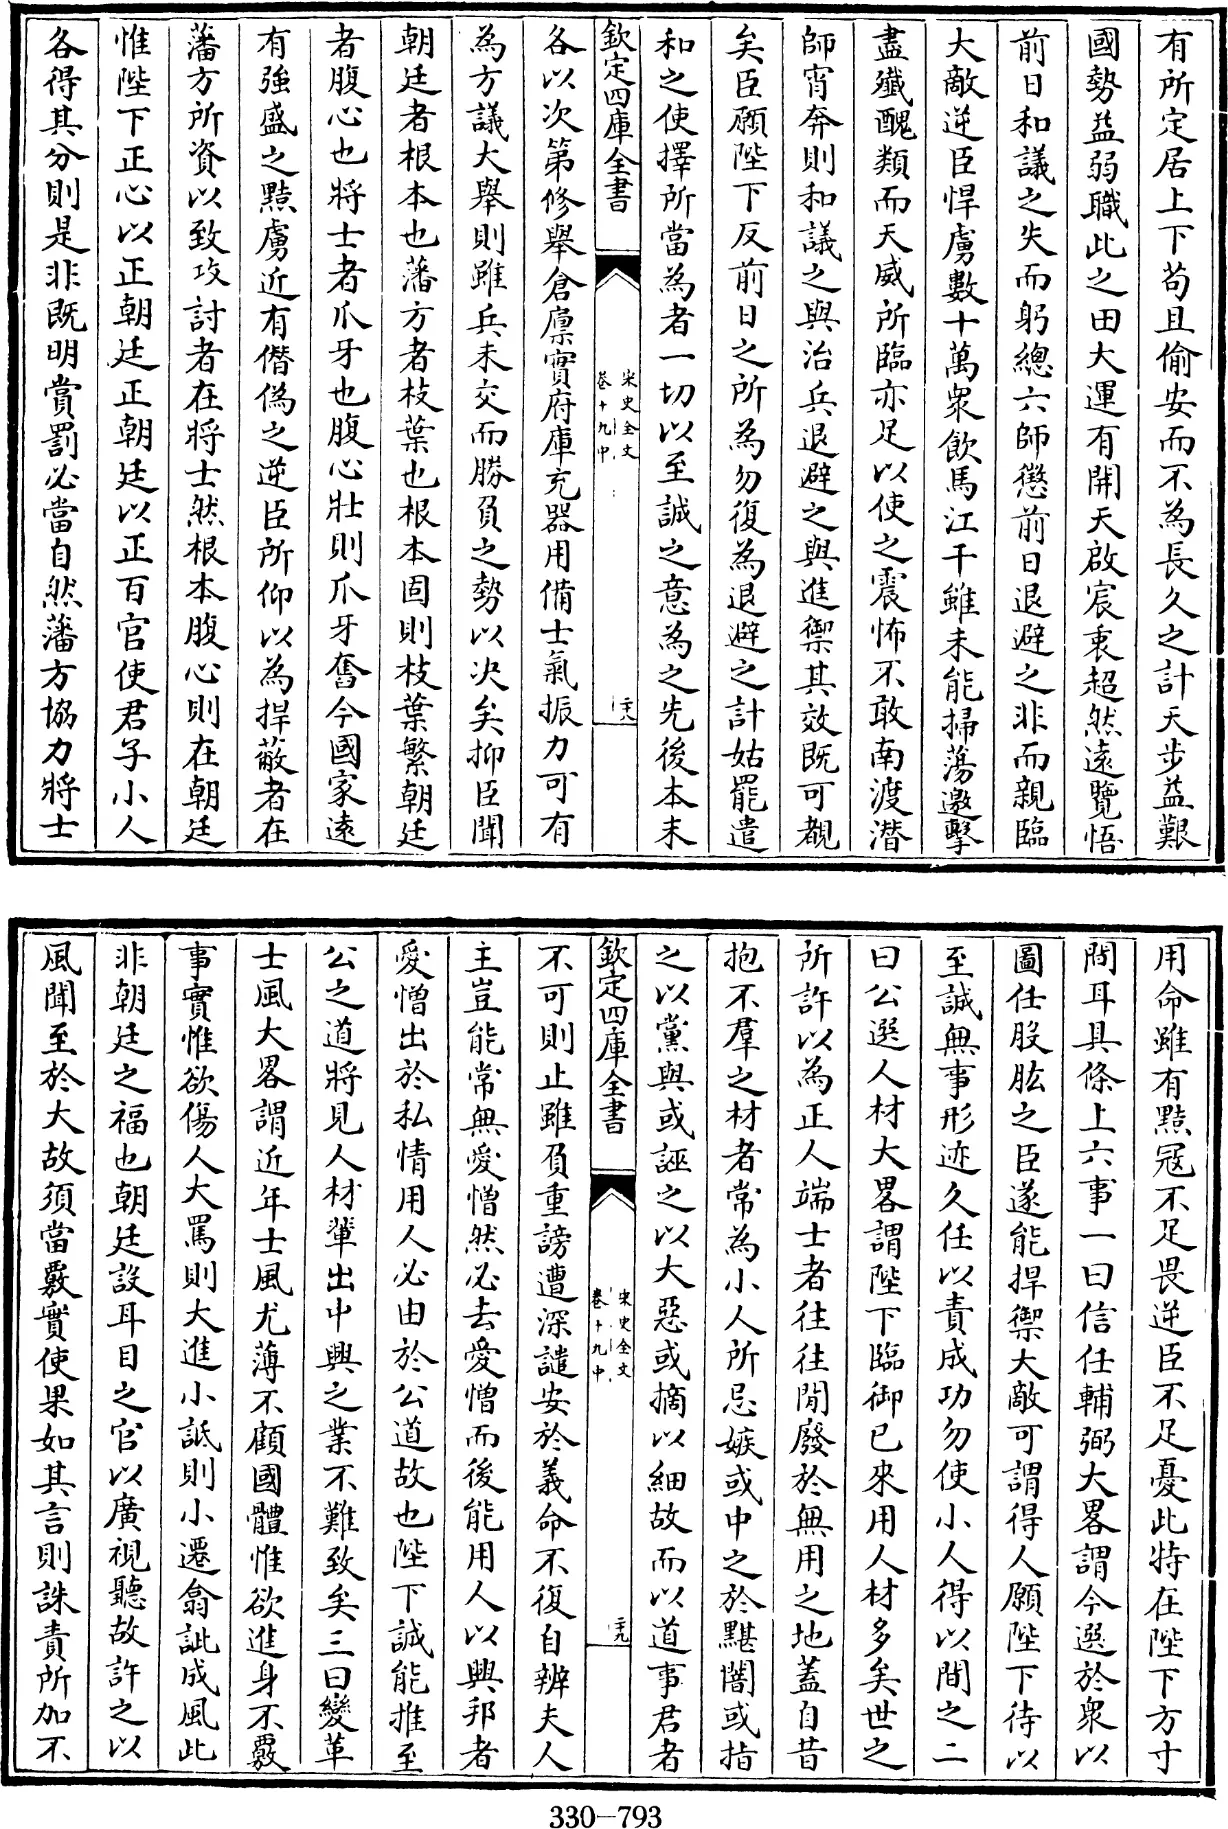 有所定居上下苟且偷安而不為長久之計天步益艱
國勢益弱職此之由大運有開天啟宸衷超然遠覽悟
前日和議之失而躬總六師懲前日退避之非而親臨
大敵逆臣悍虜數十萬衆飲馬江干雖未能掃蕩邀擊
盡殲醜類而天威所臨亦足以使之震怖不敢南渡潛
師宵奔則和議之與治兵退避之與進禦其效既可覩
矣臣願陛下反前日之所為勿復為退避之計姑罷遣
和之使擇所當為者一切以至誠之意為之先後本末
欽定四庫全書
宋史全文
卷十九中
二十八
各以次第修舉倉廩實府庫充器用備士氣振力可有
為方議大舉則雖兵未交而勝負之勢以决矣抑臣聞
朝廷者根本也藩方者枝葉也根本固則枝葉繁朝廷
者腹心也將士者爪牙也腹心壯則爪牙奮今國家遠
有強盛之黠虜近有僭偽之逆臣所仰以為捍蔽者在
藩方所資以致攻討者在將士然根本腹心則在朝廷
惟陛下正心以正朝廷正朝廷以正百官使君子小人
各得其分則是非既明賞罰必當自然藩方協力將士
用命雖有黠寇不足畏逆臣不足憂此特在陛下方寸
間耳具條上六事一曰信任輔弼大畧謂今選於衆以
圖任股肱之臣遂能捍禦大敵可謂得人願陛下待以
至誠無事形迹久任以責成功勿使小人得以間之二
曰公選人材大畧謂陛下臨御已來用人材多矣世之
所許以為正人端士者往往閒廢於無用之地蓋自昔
抱不羣之材者常為小人所忌嫉或中之於黮闇或指
之以黨與或誣之以大惡或摘以細故而以道事君者
欽定四庫全書
宋史全文
卷十九中
二十九
不可則止雖負重謗遭深譴安於義命不復自辨夫人
主豈能常無愛憎然必去愛憎而後能用人以興邦者
愛憎出於私情用人必由於公道故也陛下誠能推至
公之道將見人材輩出中興之業不難致矣三曰變革
士風大畧謂近年士風尤薄不顧國體惟欲進身不覈
事實惟欲傷人大罵則大進小詆則小遷翕訿成風此
非朝廷之福也朝廷設耳目之官以廣視聽故許之以
風聞至於大故須當覈實使果如其言則誅責所加不
330-793